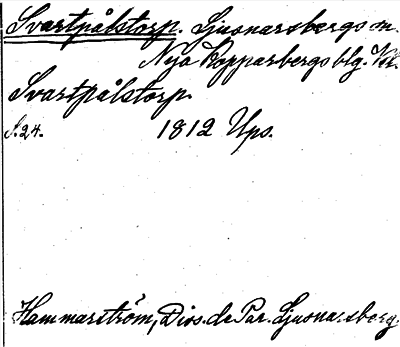 Svartpålstorp. Ljusnarsbergs sn.
Nya Kopparbergs blg. Vm.
Svartpålstorp
S. 24. 1812 Ups.
Hammarström, Diss. de Par. Ljusnarsberg.